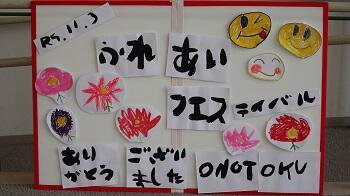 R5.11.3
ふれあい
フェスティバル
ありがとうございました
ONOTOKU